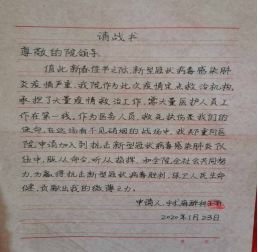 请战书
尊敬的院领导：
值此新春佳节之际，新型冠状病毒感染肺
炎疫情严重，我院作为此次疫情定点救治机构，
承担了大量疫情救治工作，需大量医护人员上
作在第一线。作为医务人员，救死扶伤是我们的
使命，在这场看不见硝烟的战场中，我郑重向医
院申请加入到抗击新型冠状病毒感染肺炎队
伍中，服从命令，听从指挥，和全院全社会共同努
力，为赢得抗击新型冠状病毒胜利，保卫人民生命
健，贡献出我的微薄之力。
申请人：麻醉科
2020年1月23日